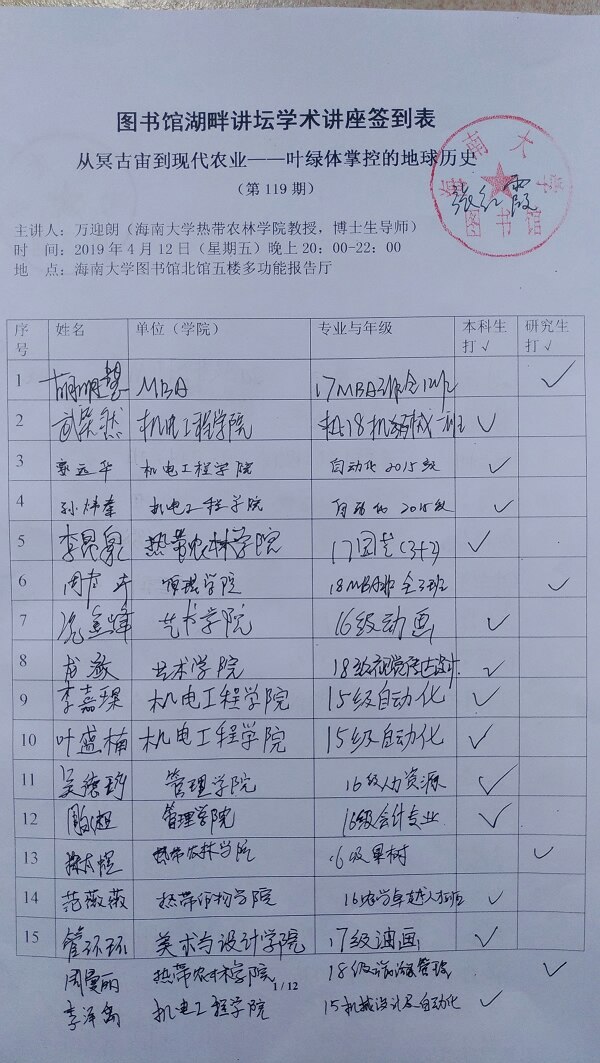 图书馆湖畔讲坛学术讲座签到表
从冥古宙到现代农业——叶绿体掌控的地球历史
（第 119 期）
海南大学
图书馆
张红霞
主讲人：万迎朗（海南大学热带农林学院教授，博士生导师）
时 间：2019 年 4 月 12 日（星期五）晚上 20：00-22：00
地 点：海南大学图书馆北馆五楼多功能报告厅
序号 姓名 单位（学院） 专业与年级 本科生打√ 研究生打√
1 胡明慧 MBA 17MBA √
2 机电工程学院 √
3 机电工程学院 自动化 2015级 √
4 孙炜 机电工程学院 自动化 2015级 √
5 李昆泉 热带农林学院 17园艺(3+2) √
6 周 管理学院 18MBA √
7 艺术学院 16级动画 √
8 肖潋 艺术学院 18级视觉传达设计 √
9 李嘉琪 机电工程学院 15级自动化 √
10 叶盛楠 机电工程学院 15级自动化 √
11 吴德 管理学院 16级人力资源 √
12 管理学院 16级会计专业 √
13 热带农林学院 16级果树 √
14 范薇薇 热带作物学院 16农学卓越人才班 √
15 管环环 美术与设计学院 17级油画 √
周曼丽 热带农林学院 18级 管理 √
1 / 12
李泽禹 机电工程学院 15机械设计及自动化 √